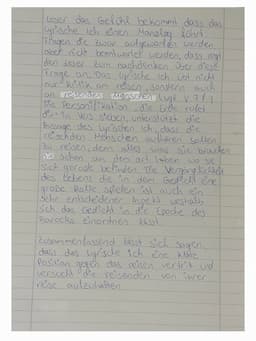 Leser das Gedicht bekommt dass das
lyrische Ich einen Monolog führt
Fragen die zwar aufgeworfen werden
aber nicht beantwortet werden, dass regt
den Leser zum nachdenken über diese
Frage an. Das lyrische Ich übt nicht
nur Kritik am reisen, sondern auch
an Menschen (vgl V.7f)
Die Personifikation, die Erde rufet
die in Vers sieben, unterstützt die
Aussage des lyrischen Ich, dass die
reisenden Menschen aufhören sollen
zu reisen, denn alles was sie brauchen
sehen an den Ort leben wo sie
sich gerade befinden. Die Vergänglichkeit
des Lebens die in dem Gedicht eine
große Rolle spielen ist auch ein
sehr entscheidener Aspekt weshalb
sich das Gedicht in die Epoche des
Barocks einordnen lässt.
Zusammenfassend lässt sich sagen,
dass das Lyrische Ich eine klare
Position gegen das reisen vertrit und
versucht die reisenden von ihrer
reise aufzuhalten